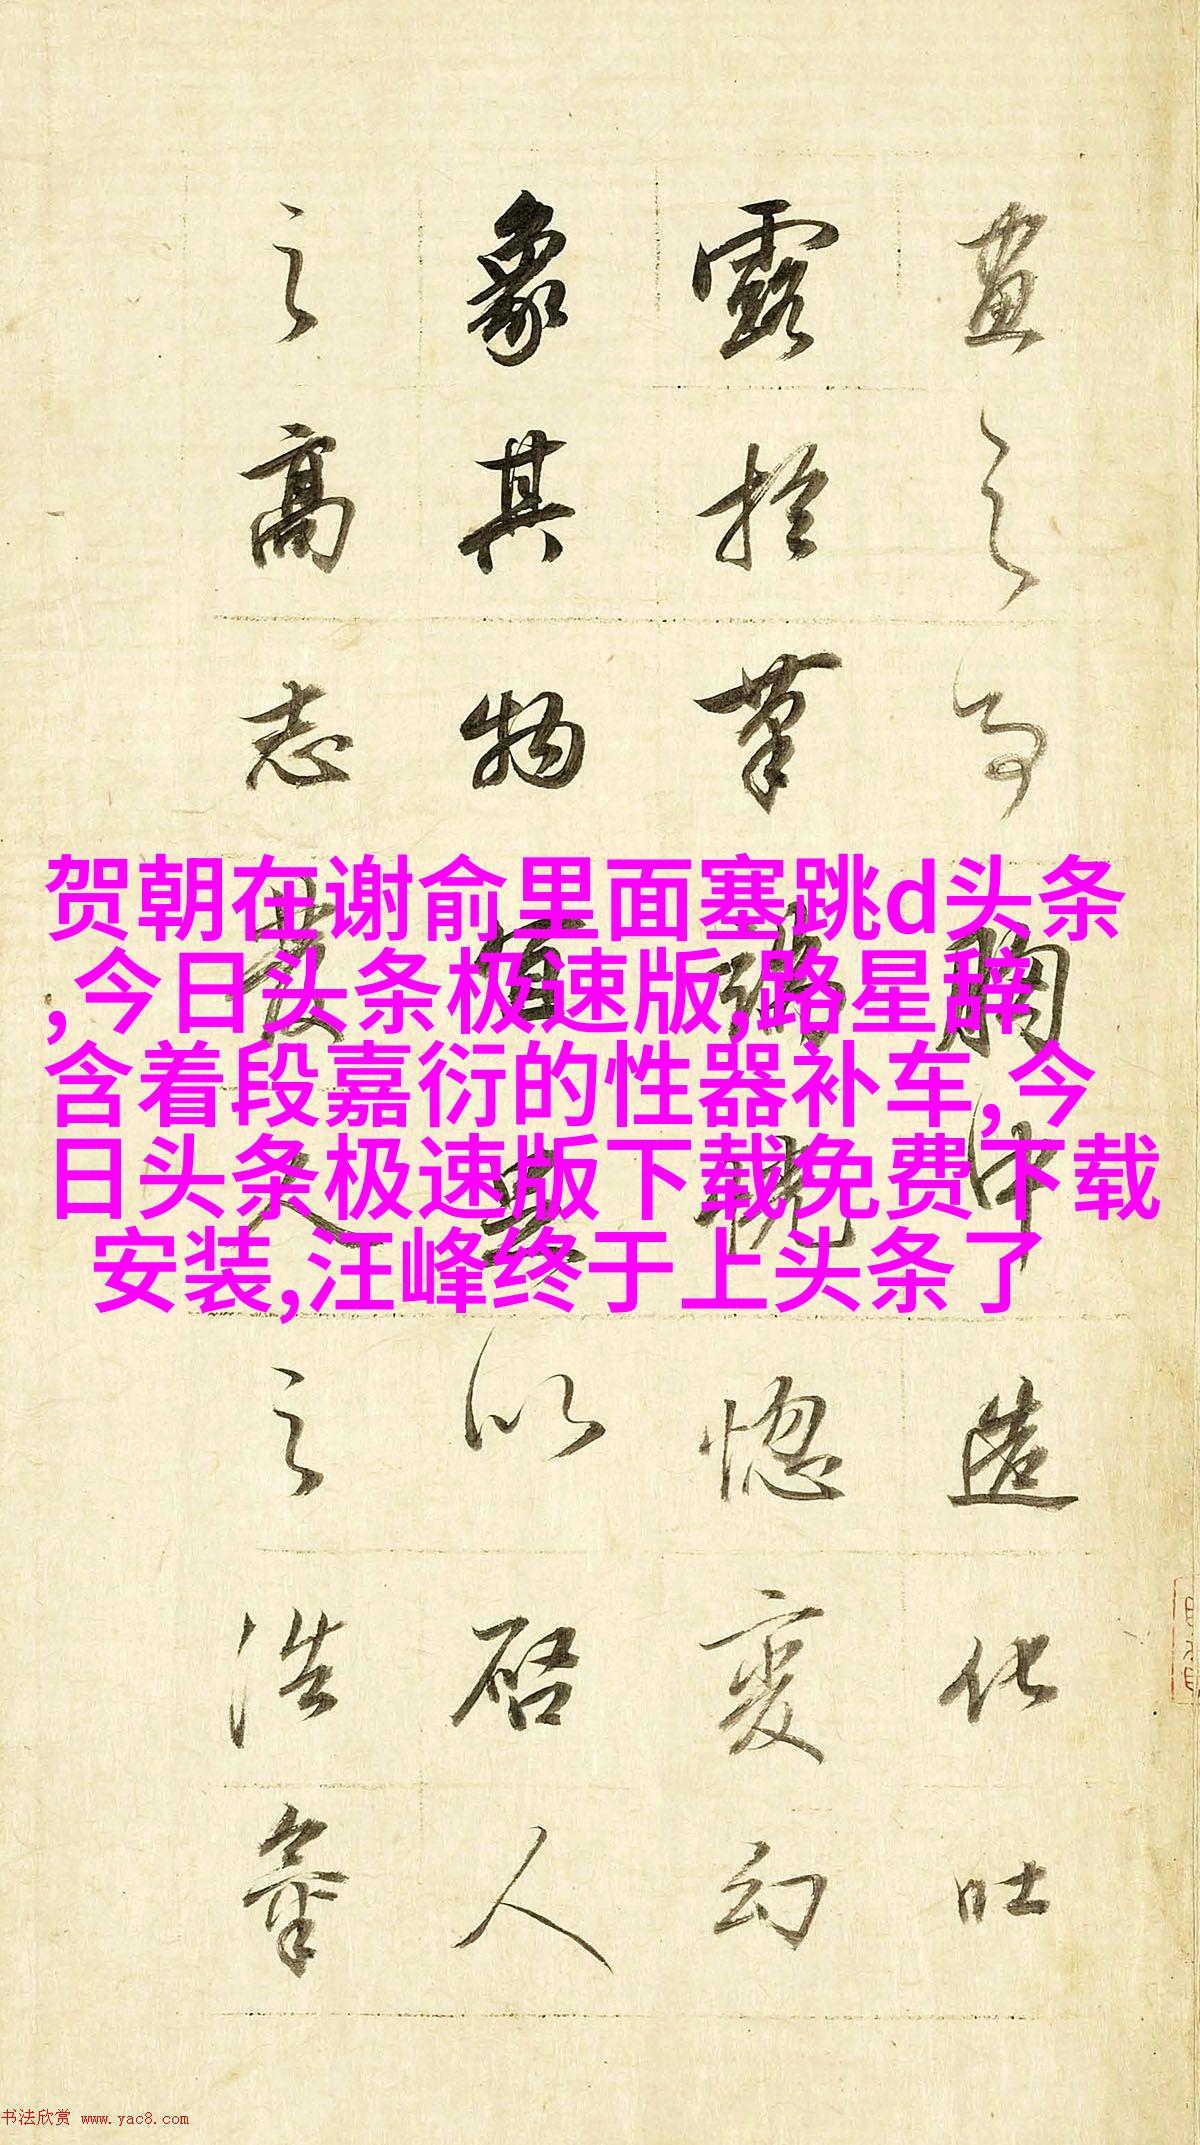 畫之胸中造化吐
露於筆端恍惚變幻
象其物宜以启人
之高志發人之浩氣
贺朝在谢俞里面塞跳d头条
,今日头条极速版,路星辞
含着段嘉衍的性器补车,今
日头条极速版下载免费下载
安装,汪峰终于上头条了
书法欣赏 www.yac8.com